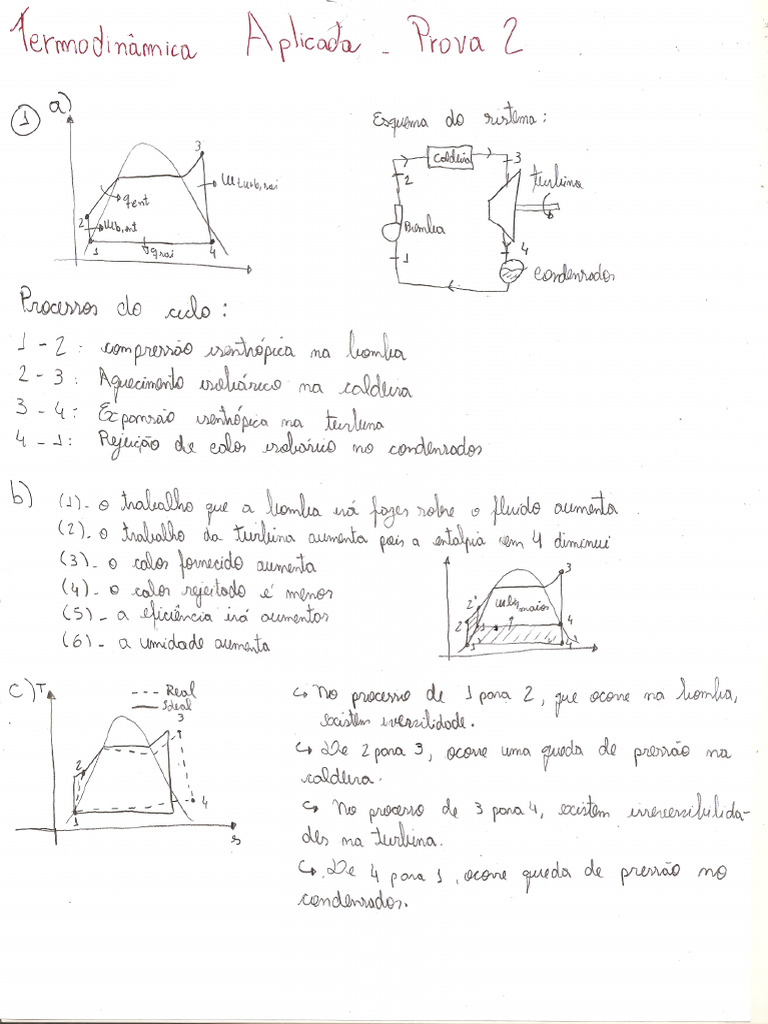 Termodinâmica Aplicada - Prova 2
1 a)
Esquema do sistema:
3
caldeira
3
wturb,sai
turbina
2
qent
2
wb,ent
Bomba
1
qsai
4
1
4
condensador
Processos do ciclo:
1 - 2: compressão isentrópica na bomba
2 - 3: Aquecimento isobárico na caldeira
3 - 4: Expansão isentrópica na turbina
4 - 1: Rejeição de calor isobárico no condensador
b) (1)- o trabalho que a bomba irá fazer sobre o fluido aumenta
(2)- o trabalho da turbina aumenta pois a entalpia em 4 diminui
(3)- o calor fornecido aumenta
(4)- o calor rejeitado é menor
(5)- a eficiência irá aumentar
(6)- a umidade aumenta
3
2'
maior
2
4
1
4
c) T
--- Real
— Ideal
3
2
4
1
s
↳ No processo de 1 para 2, que ocorre na bomba,
existem iversilidade.
↳ De 2 para 3, ocorre uma queda de pressão na
caldeira.
↳ No processo de 3 para 4, existem irreversibilida-
des na turbina.
↳ De 4 para 1, ocorre queda de pressão no
condensador.